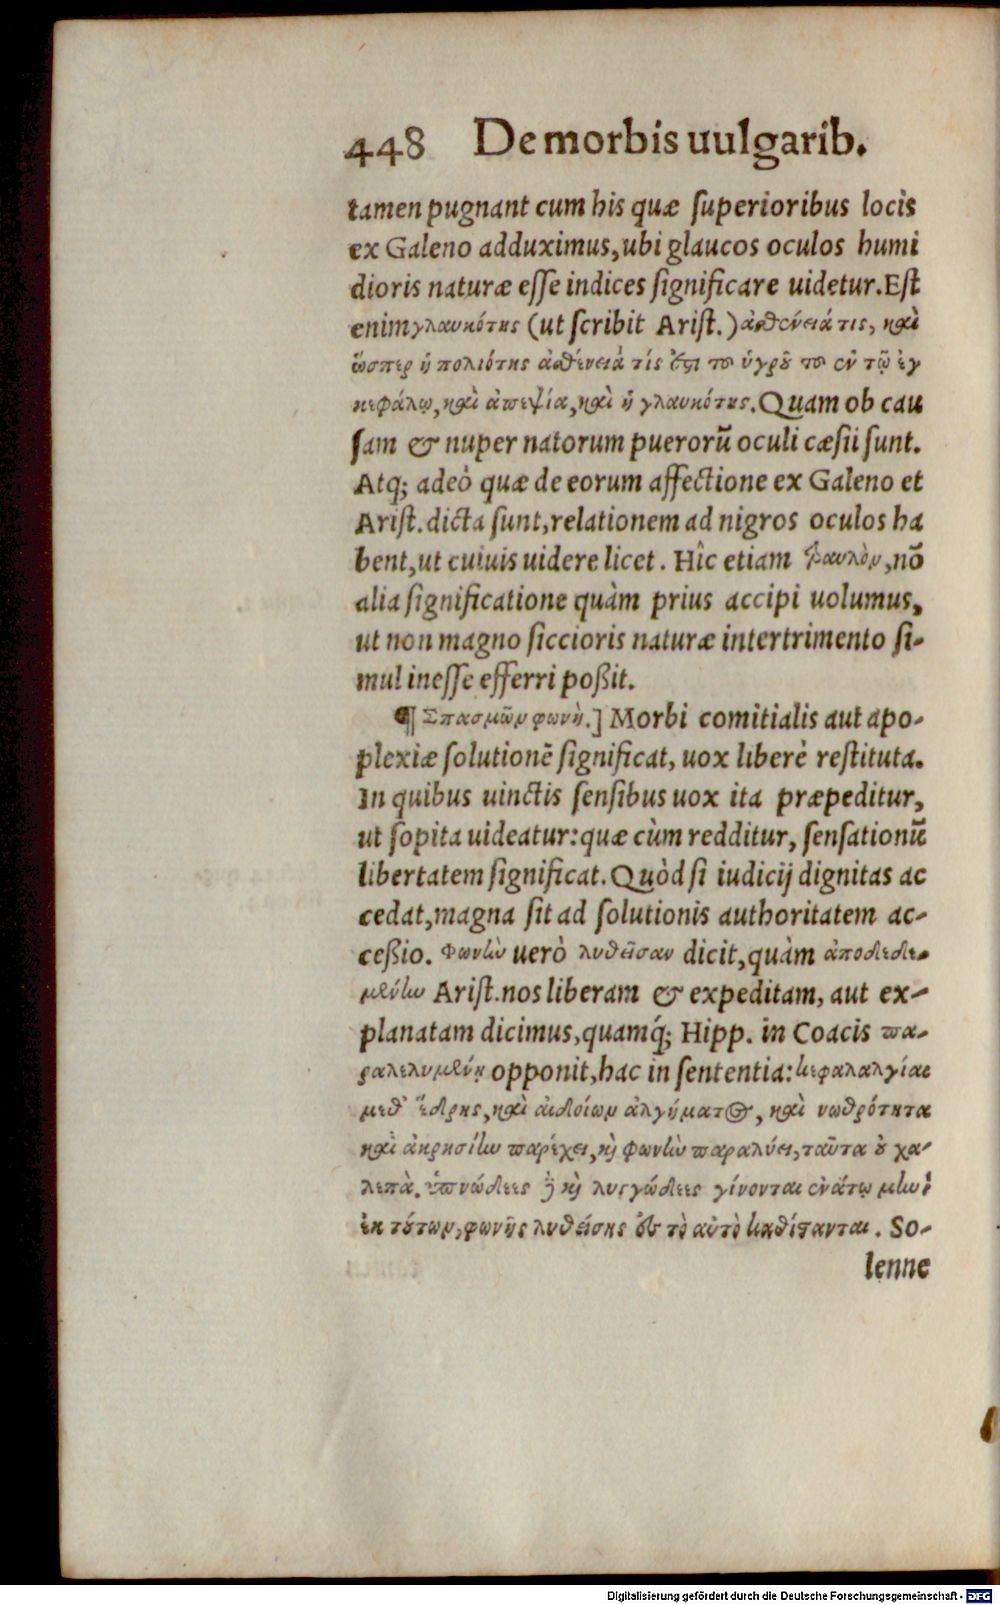 448 De morbis uulgarib.
tamen pugnant cum his quæ ſuperioribus locìs
ex Galeno adduximus, ubi glaucos oculos humi
dioris naturæ eſſe indices ſignificare uidetur. Eſt
enim γλαυκότης (ut ſcribit Ariſt.) ἀσθένειά τις, καὶ
ὥσπερ ἡ πολιότης ἀσθένειά τίς ἐστι τοῦ ὑγροῦ τοῦ ἐν τῷ ἐγ
κεφάλῳ, καὶ ἀπεψία, καὶ ἡ γλαυκότης. Quam ob cau
ſam & nuper natorum puerorũ oculi cæſii ſunt.
Atq; adeò quæ de eorum affectione ex Galeno et
Ariſt. dicta ſunt, relationem ad nigros oculos ha
bent, ut cuiuis uidere licet. Hîc etiam φαυλὸν, nõ
alia ſignificatione quàm prius accipi uolumus,
ut non magno ſiccioris naturæ intertrimento ſi-
mul ineſſe efferri poßit.
¶ Σπασμῶν φωνὴ.] Morbi comitialis aut apo-
plexiæ ſolutionẽ ſignificat, uox liberè reſtituta.
In quibus uinctis ſenſibus uox ita præpeditur,
ut ſopita uideatur: quæ cùm redditur, ſenſationũ
libertatem ſignificat. Quòd ſi iudicij dignitas ac
cedat, magna ſit ad ſolutionis authoritatem ac-
ceßio. Φωνὴν uerò λυθεῖσαν dicit, quàm ἀποδεδε-
μένην Ariſt. nos liberam & expeditam, aut ex-
planatam dicimus, quamq́; Hipp. in Coacis πα-
ραλελυμένῃ opponit, hac in ſententia: κεφαλαλγίαι
μεθ' ἕδρης, καὶ αἰδοίων ἀλγήματος, καὶ νωθρότητα
καὶ ἀκρησίην παρέχει, καὶ φωνὴν παραλύει, ταῦτα οὐ χα-
λεπὰ. ὑπνώδεες δὲ καὶ λυγγώδεες γίνονται ἐνάτῳ μηνὶ
ἐκ τούτων, φωνῆς λυθείσης ἐς τὸ αὐτὸ καθίστανται. So-
lenne
Digitalisierung gefördert durch die Deutsche Forschungsgemeinschaft - DFG